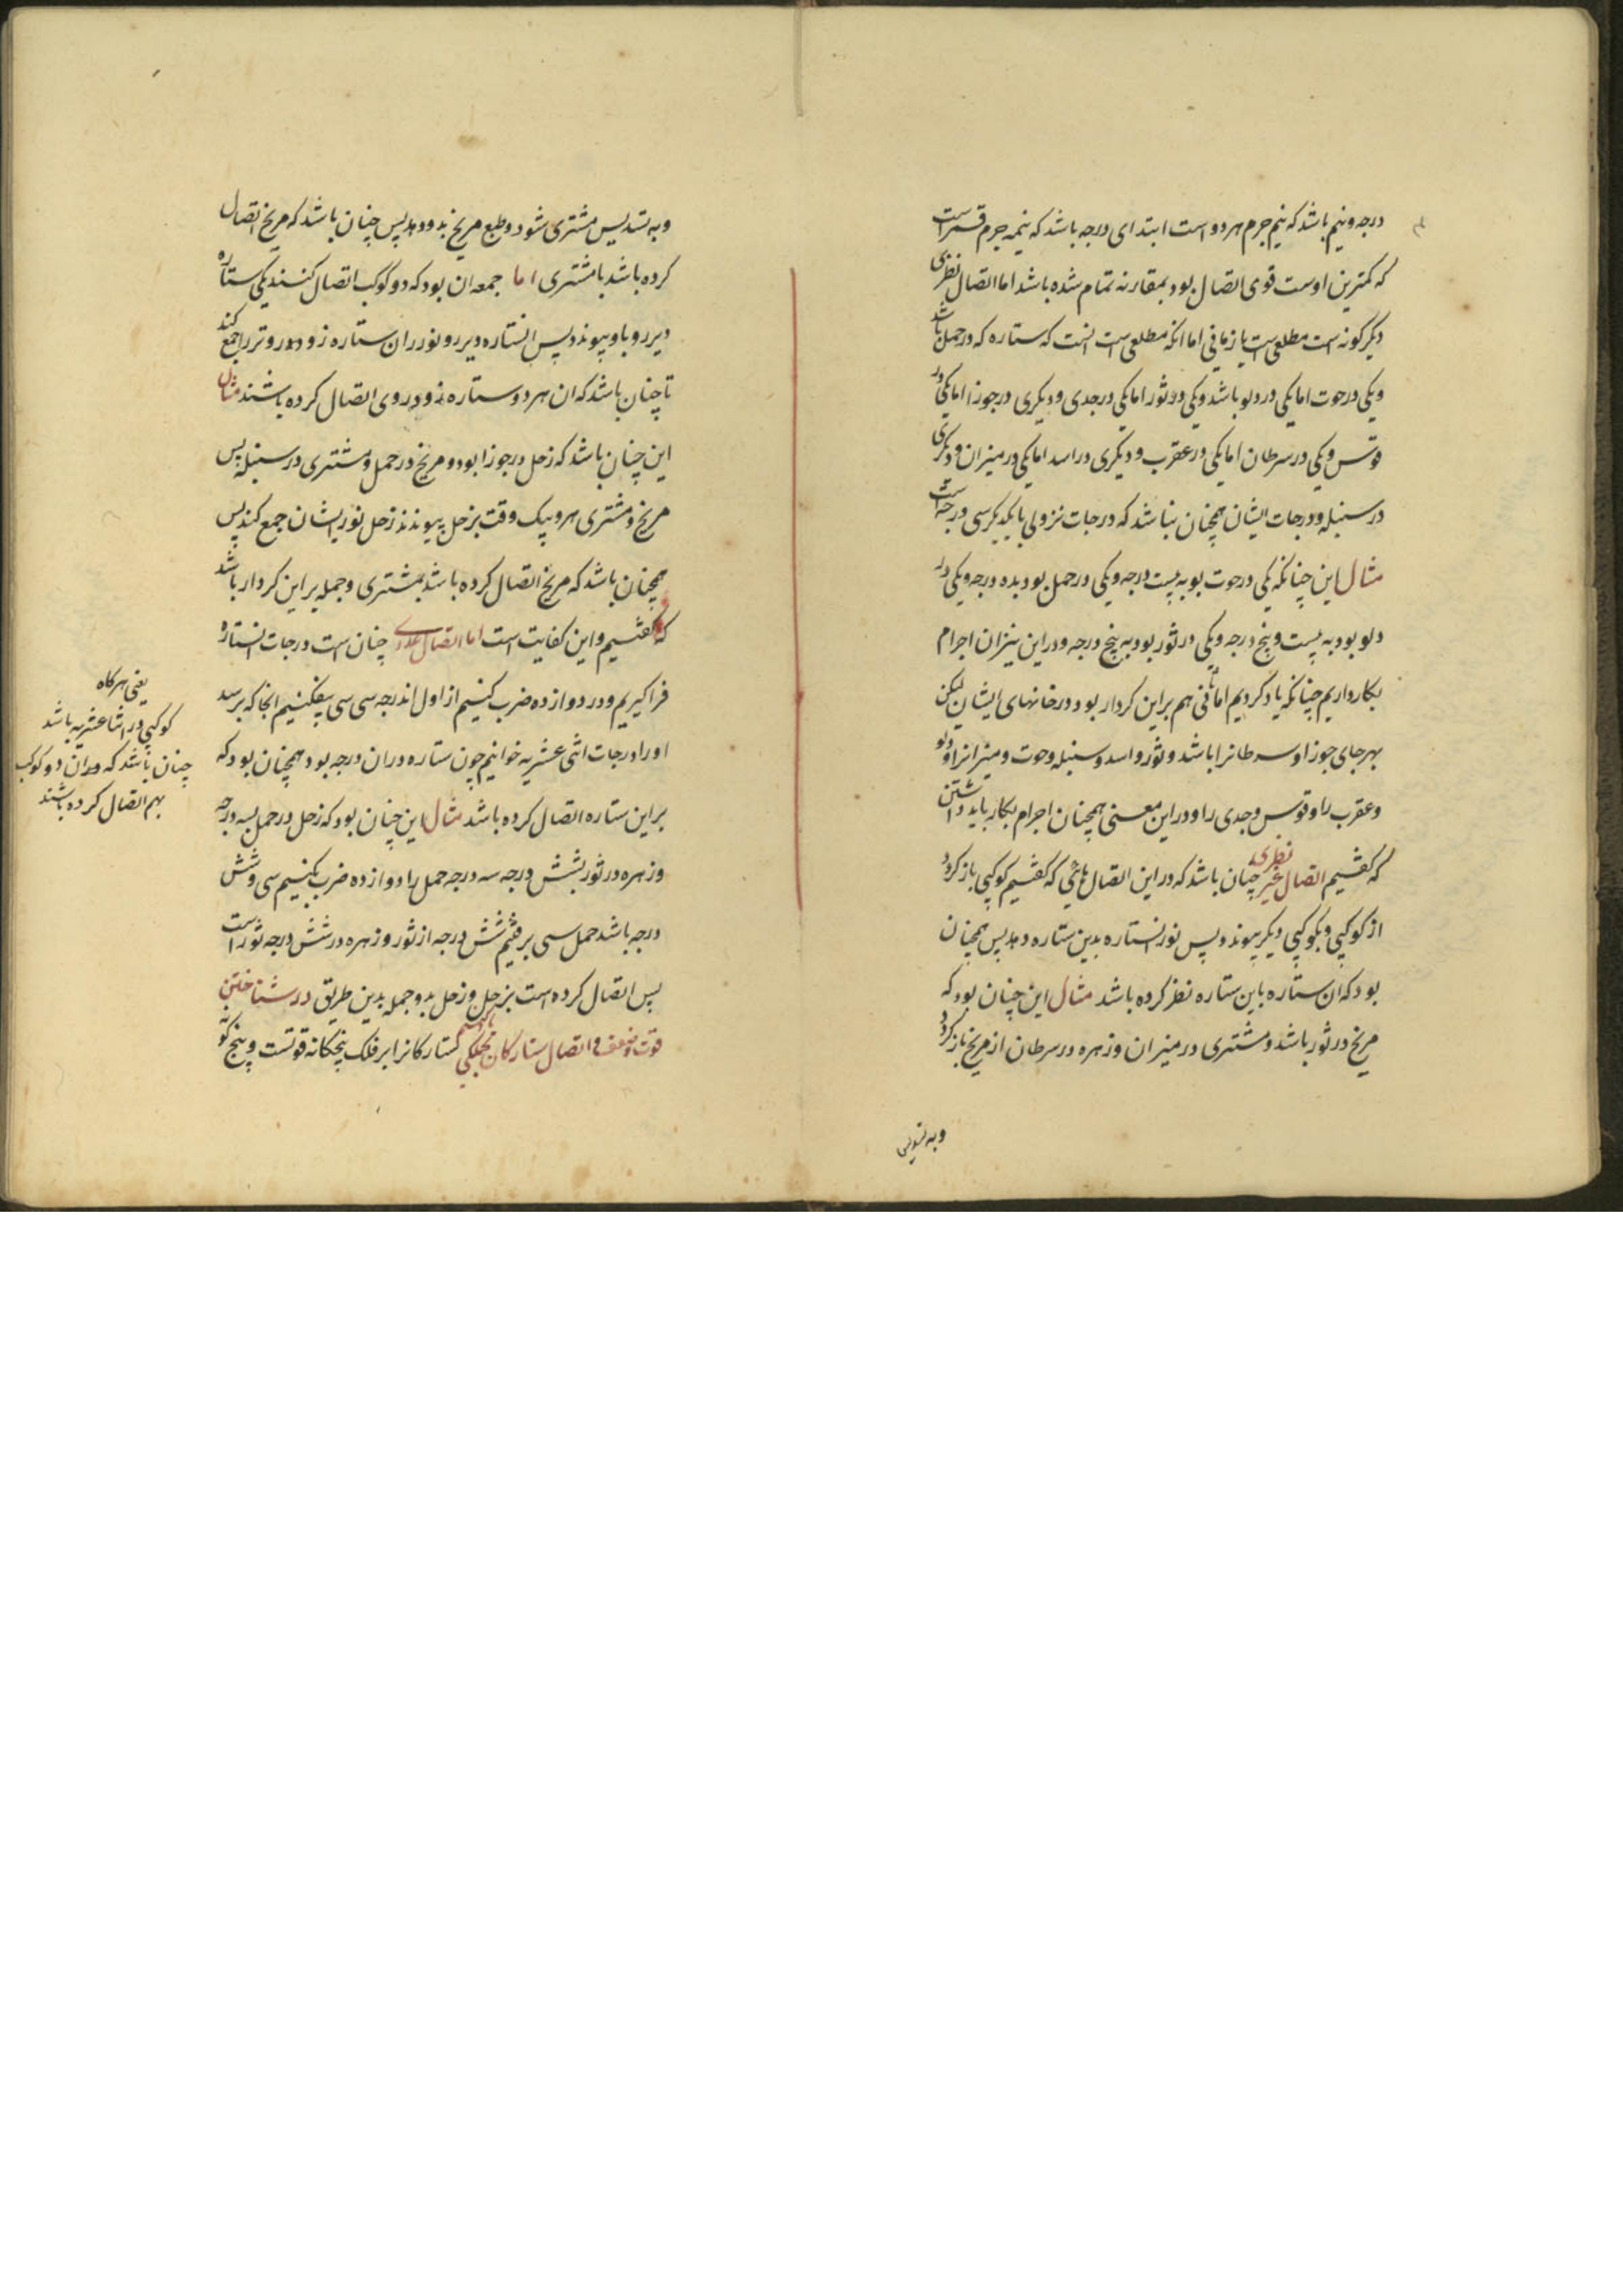 درجه ونیم باشد که نیم جرم هر دو است ابتدای درجه باشد که نیمه جرم قمر است
که کمترین اوست قوی اتصال بود بمقارنه تمام شده باشد اما اتصال نظری
دیگر کونه است مطلعی است یا زمانی اما انکه مطلعی است انست که ستاره که در حمل باشد
ویکی در حوت اما یکی در دلو باشد ویکی در ثور اما یکی در جدی و دیکری در جوزا اما یکی در
قوس ویکی در سرطان اما یکی در عقرب و دیکری در اسد اما یکی در میزان و دیکری
در سنبله ودرجات ایشان همچنان بباشد که درجات نزولی با یکدیکر سی درجه است
مثال این چنانکه یکی در حوت بود به بیست درجه ویکی در حمل بود بده درجه ویکی در
دلو بود به بیست وپنج درجه ویکی در ثور بود به پنج درجه ودر این نیز ان اجرام
بکار داریم چنانکه یاد کردیم اما زمانی هم بر این کردار بود و در خانهای ایشان لیکن
بهر جای جوزا و سرطانرا باشد و ثور و اسد و سنبله وحوت و میزانرا و دلو
وعقرب را و قوس وجدی را ودر این معنی همچنان اجرام بکار باید داشتن
که کفتیم اتصال غیر نظری چنان باشد که در این اتصال هائی که کفتیم کوکبی باز کردد
از کوکبی وبکوکبی دیکر پیوندد پس نور انستاره بدین ستاره دهد پس همچنان
بود که ان ستاره باین ستاره نظر کرده باشد مثال این چنان بود که
مریخ در ثور باشد ومشتری در میزان وزهره در سرطان از مریخ باز کردد
وبه تسدیس
وبه تسدیس مشتری شود وطبع مریخ بدو دهد پس چنان باشد که مریخ اتصال
کرده باشد با مشتری اما جمعه ان بود که دو کوکب اتصال کنند یکی ستاره
دیر رو باو پیوندد پس انستاره دیر رو نور ان ستاره زود رو تر را جمع کند
تا چنان باشد که ان هر دو ستاره زود روی اتصال کرده باشند مثال
این چنان باشد که زحل در جوزا بود و مریخ در حمل و مشتری در سنبله پس
مریخ و مشتری هر دو بیک وقت بزحل پیوندند زحل نور ایشان جمع کند پس
همچنان باشد که مریخ اتصال کرده باشد بمشتری وجمله بر این کردار باشد
که کفتیم واین کفایت است اما اتصال عددی چنان است درجات انستاره
فرا کیریم ودر دوازده ضرب کنیم از اول اندرجه سی سی بیفکنیم انجا که برسد
اورا درجات اثنی عشریه خوانیم چون ستاره دران درجه بود همچنان بود که
بر این ستاره اتصال کرده باشد مثال این چنان بود که زحل در حمل بسه درجه
وزهره در ثور بشش درجه سه درجه حمل را دوازده ضرب بکنیم سی وشش
درجه باشد حمل سی برفتیم شش درجه از ثور وزهره در شش درجه ثور است
پس اتصال کرده است بزحل وزحل بدو جمله بدین طریق در شناختن
قوت وضعف و اتصال ستارکان بجملکی ستارکانرا بر فلک پنجکانه قوتست وپنج کونه
یعنی هرکاه
کوکبی در اثنا عشریه باشد
چنان باشد که دران دو کوکب
بهم اتصال کرده باشند